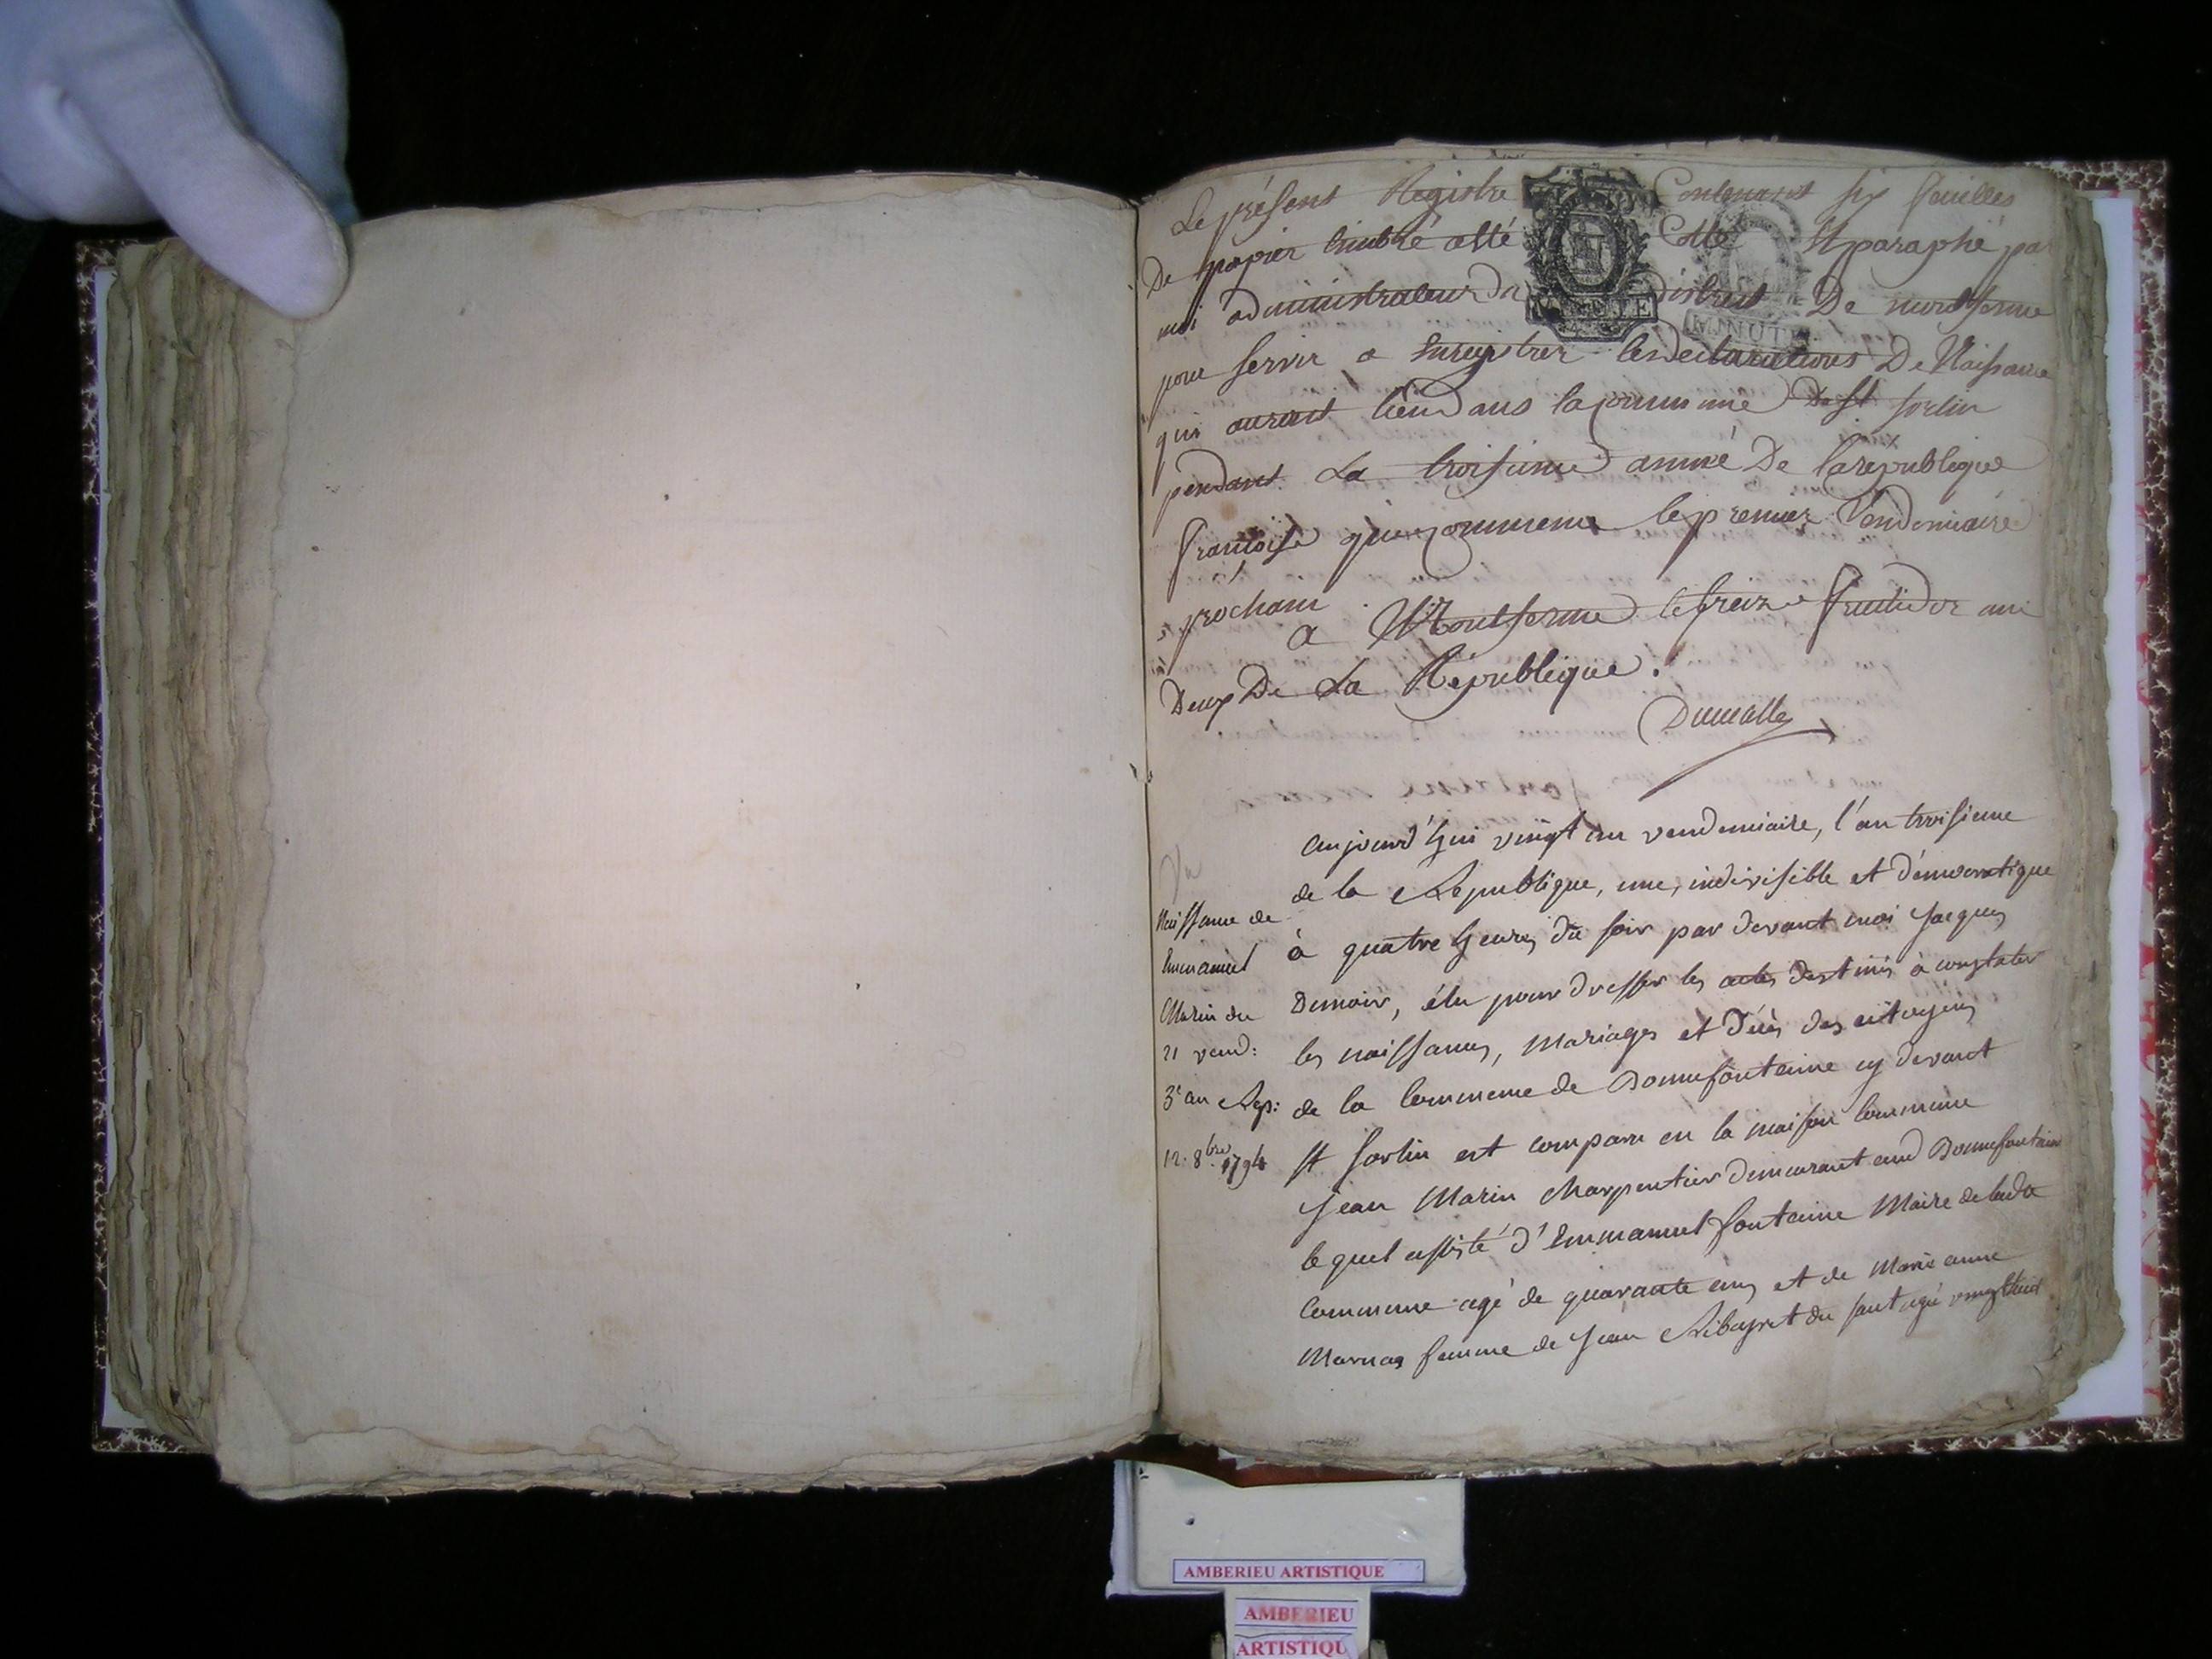 Le présent Registre Contenant six feuilles
De papier timbré a été Cotté Et paraphé par
moi administrateur du district De montferme
pour servir a Enregistrer les declarations De Naissance
qui auront lieu Dans la commune De St sorlin
pendant La troisieme année De la république
françoise qui commence le premier Vendemiaire
prochain
a Montferme le treize fructidor an
Deux De La République.
MINUTE
MINUTE
aujourd'hui vingt un vendemiaire, l'an troisieme
de la République, une, indivisible et démocratique
à quatre heures du soir par devant moi Jacques
Demoir, élu pour dresser les actes destinés à constater
les naissances, Mariages et Décès des citoyens
de la Commune de Bonnefontaine cy devant
St Sorlin est comparu en la maison Commune
Jean Marin Charpentier demeurant aud Bonnefontaine
le quel assisté d'Emmanuel fontaine Maire de lad
Commune agé de quarante ans et de Marie anne
Marnas femme de Jean Ribayret du saut agée vingt huit
Naissance de
Emmanuel
Marin du
21 vend:
3e an Rep:
12. 8bre 1794
AMBERIEU ARTISTIQUE
AMBERIEU
ARTISTIQU